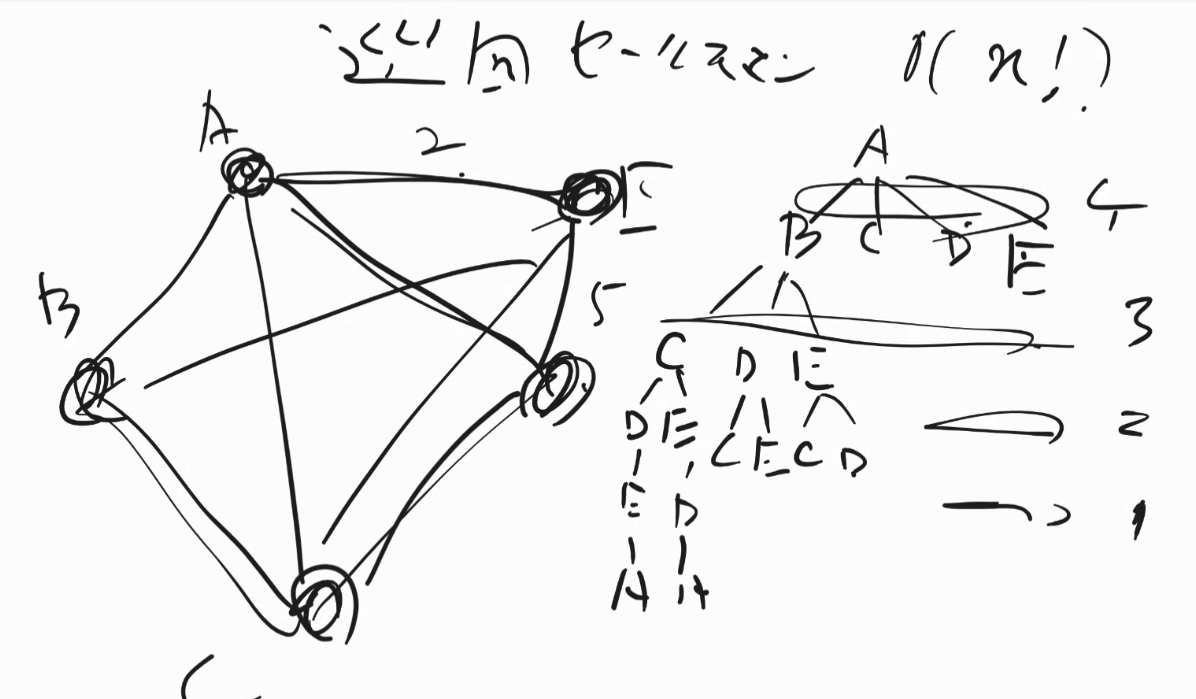 巡回セールスマン O(n!)
A
2
E
B
5
C
A
B C D E 4
3
C D E
D E C E C D 2
E D 1
A A